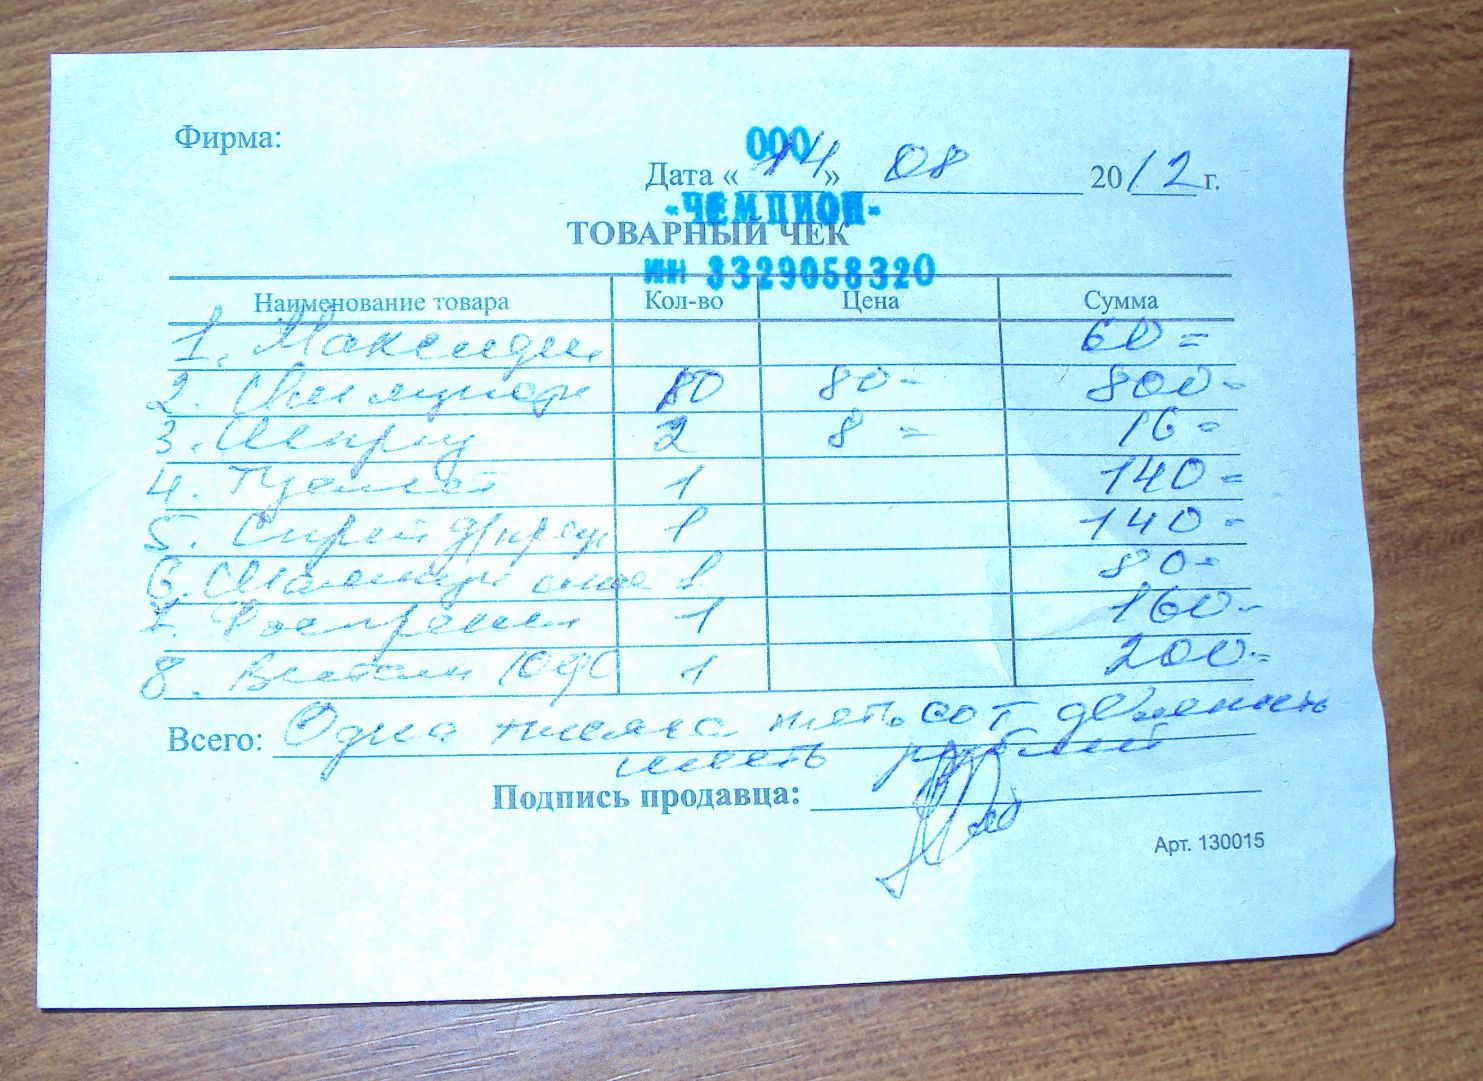 Фирма:
ООО
Дата « 14 » 08 2012 г.
«ЧЕМПИОН»
ТОВАРНЫЙ ЧЕК
ИНН 3329058320
Наименование товара Кол-во Цена Сумма
1. Максидин 60=
2. 10 80- 800-
3. Шприц 2 8= 16=
4. 1 140=
5. Спрей 1 140-
6. 1 80-
7. 1 160-
8. 1 200-
Всего: Одна тысяча пятьсот девяносто
шесть рублей
Подпись продавца:
Арт. 130015